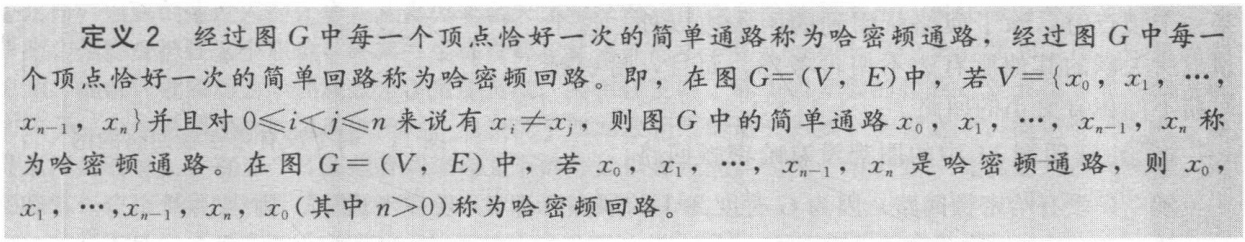 定义 2 经过图 G 中每一个顶点恰好一次的简单通路称为哈密顿通路，经过图 G 中每一
个顶点恰好一次的简单回路称为哈密顿回路。即，在图 G=(V，E)中，若 V={x₀，x₁，…，
xₙ₋₁，xₙ}并且对 0≤i<j≤n 来说有 xᵢ≠xⱼ，则图 G 中的简单通路 x₀，x₁，…，xₙ₋₁，xₙ 称
为哈密顿通路。在图 G=(V，E)中，若 x₀，x₁，…，xₙ₋₁，xₙ 是哈密顿通路，则 x₀，
x₁，…,xₙ₋₁，xₙ，x₀(其中 n>0)称为哈密顿回路。